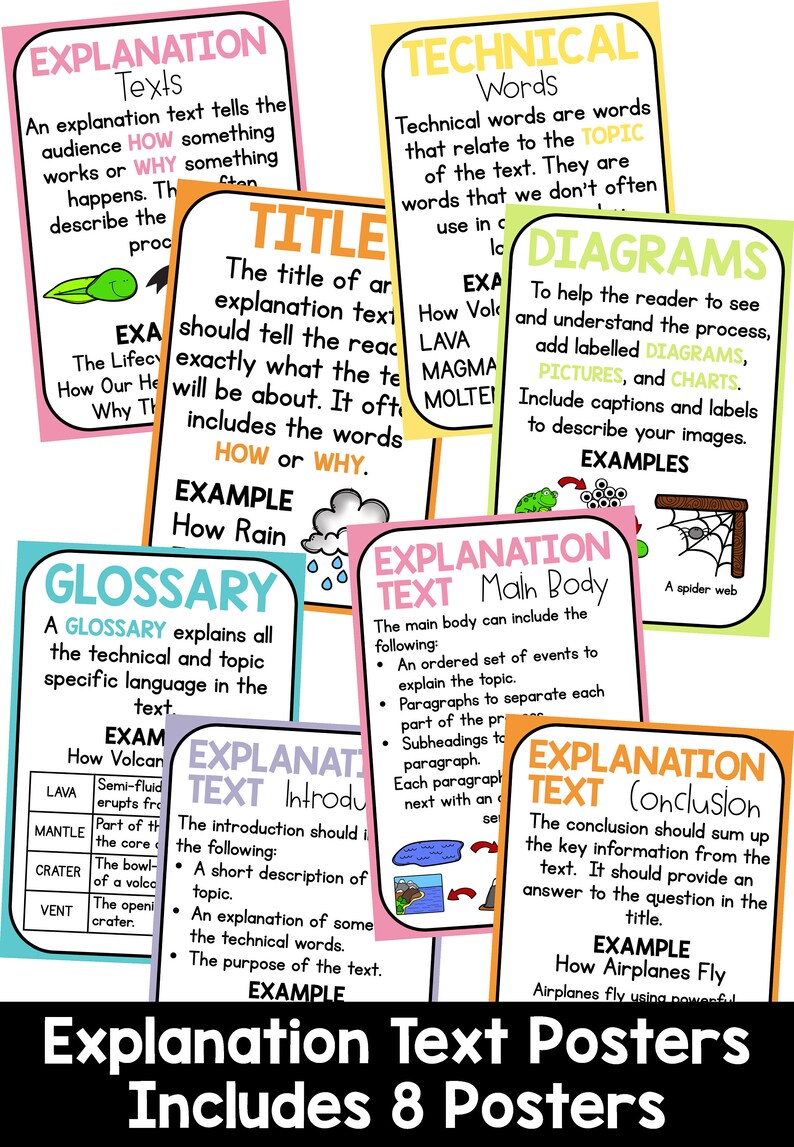 EXPLANATION
Texts
An explanation text tells the
audience HOW something
works or WHY something
happens.
describe the
EXA
The Lifecy
How Our He
Why Th
TECHNICAL
Words
Technical words are words
that relate to the TOPIC
of the text. They are
words that we don't often
use in
EXA
How Volc
LAVA
MAGMA
MOLTE
TITLE
The title of an
explanation text
should tell the read
exactly what the te
will be about. It ofte
includes the words
HOW or WHY.
EXAMPLE
How Rain
DIAGRAMS
To help the reader to see
and understand the process,
add labelled DIAGRAMS,
PICTURES, and CHARTS.
Include captions and labels
to describe your images.
EXAMPLES
A spider web
GLOSSARY
A GLOSSARY explains all
the technical and topic
specific language in the
text.
EXAM
How Volcan
LAVA
Semi-fluid
erupts fro
MANTLE
Part of th
the core
CRATER
The bowl-
of a volca
VENT
The openi
crater.
EXPLANATION
TEXT Main Body
The main body can include the
following:
• An ordered set of events to
explain the topic.
• Paragraphs to separate each
part of the process.
• Subheadings to
paragraph.
Each paragraph
next with an
EXPLANATI
TEXT Introdu
The introduction should i
the following:
• A short description of
topic.
• An explanation of some
the technical words.
• The purpose of the text.
EXAMPLE
EXPLANATION
TEXT Conclusion
The conclusion should sum up
the key information from the
text. It should provide an
answer to the question in the
title.
EXAMPLE
How Airplanes Fly
Airplanes fly using powerful
Explanation Text Posters
Includes 8 Posters